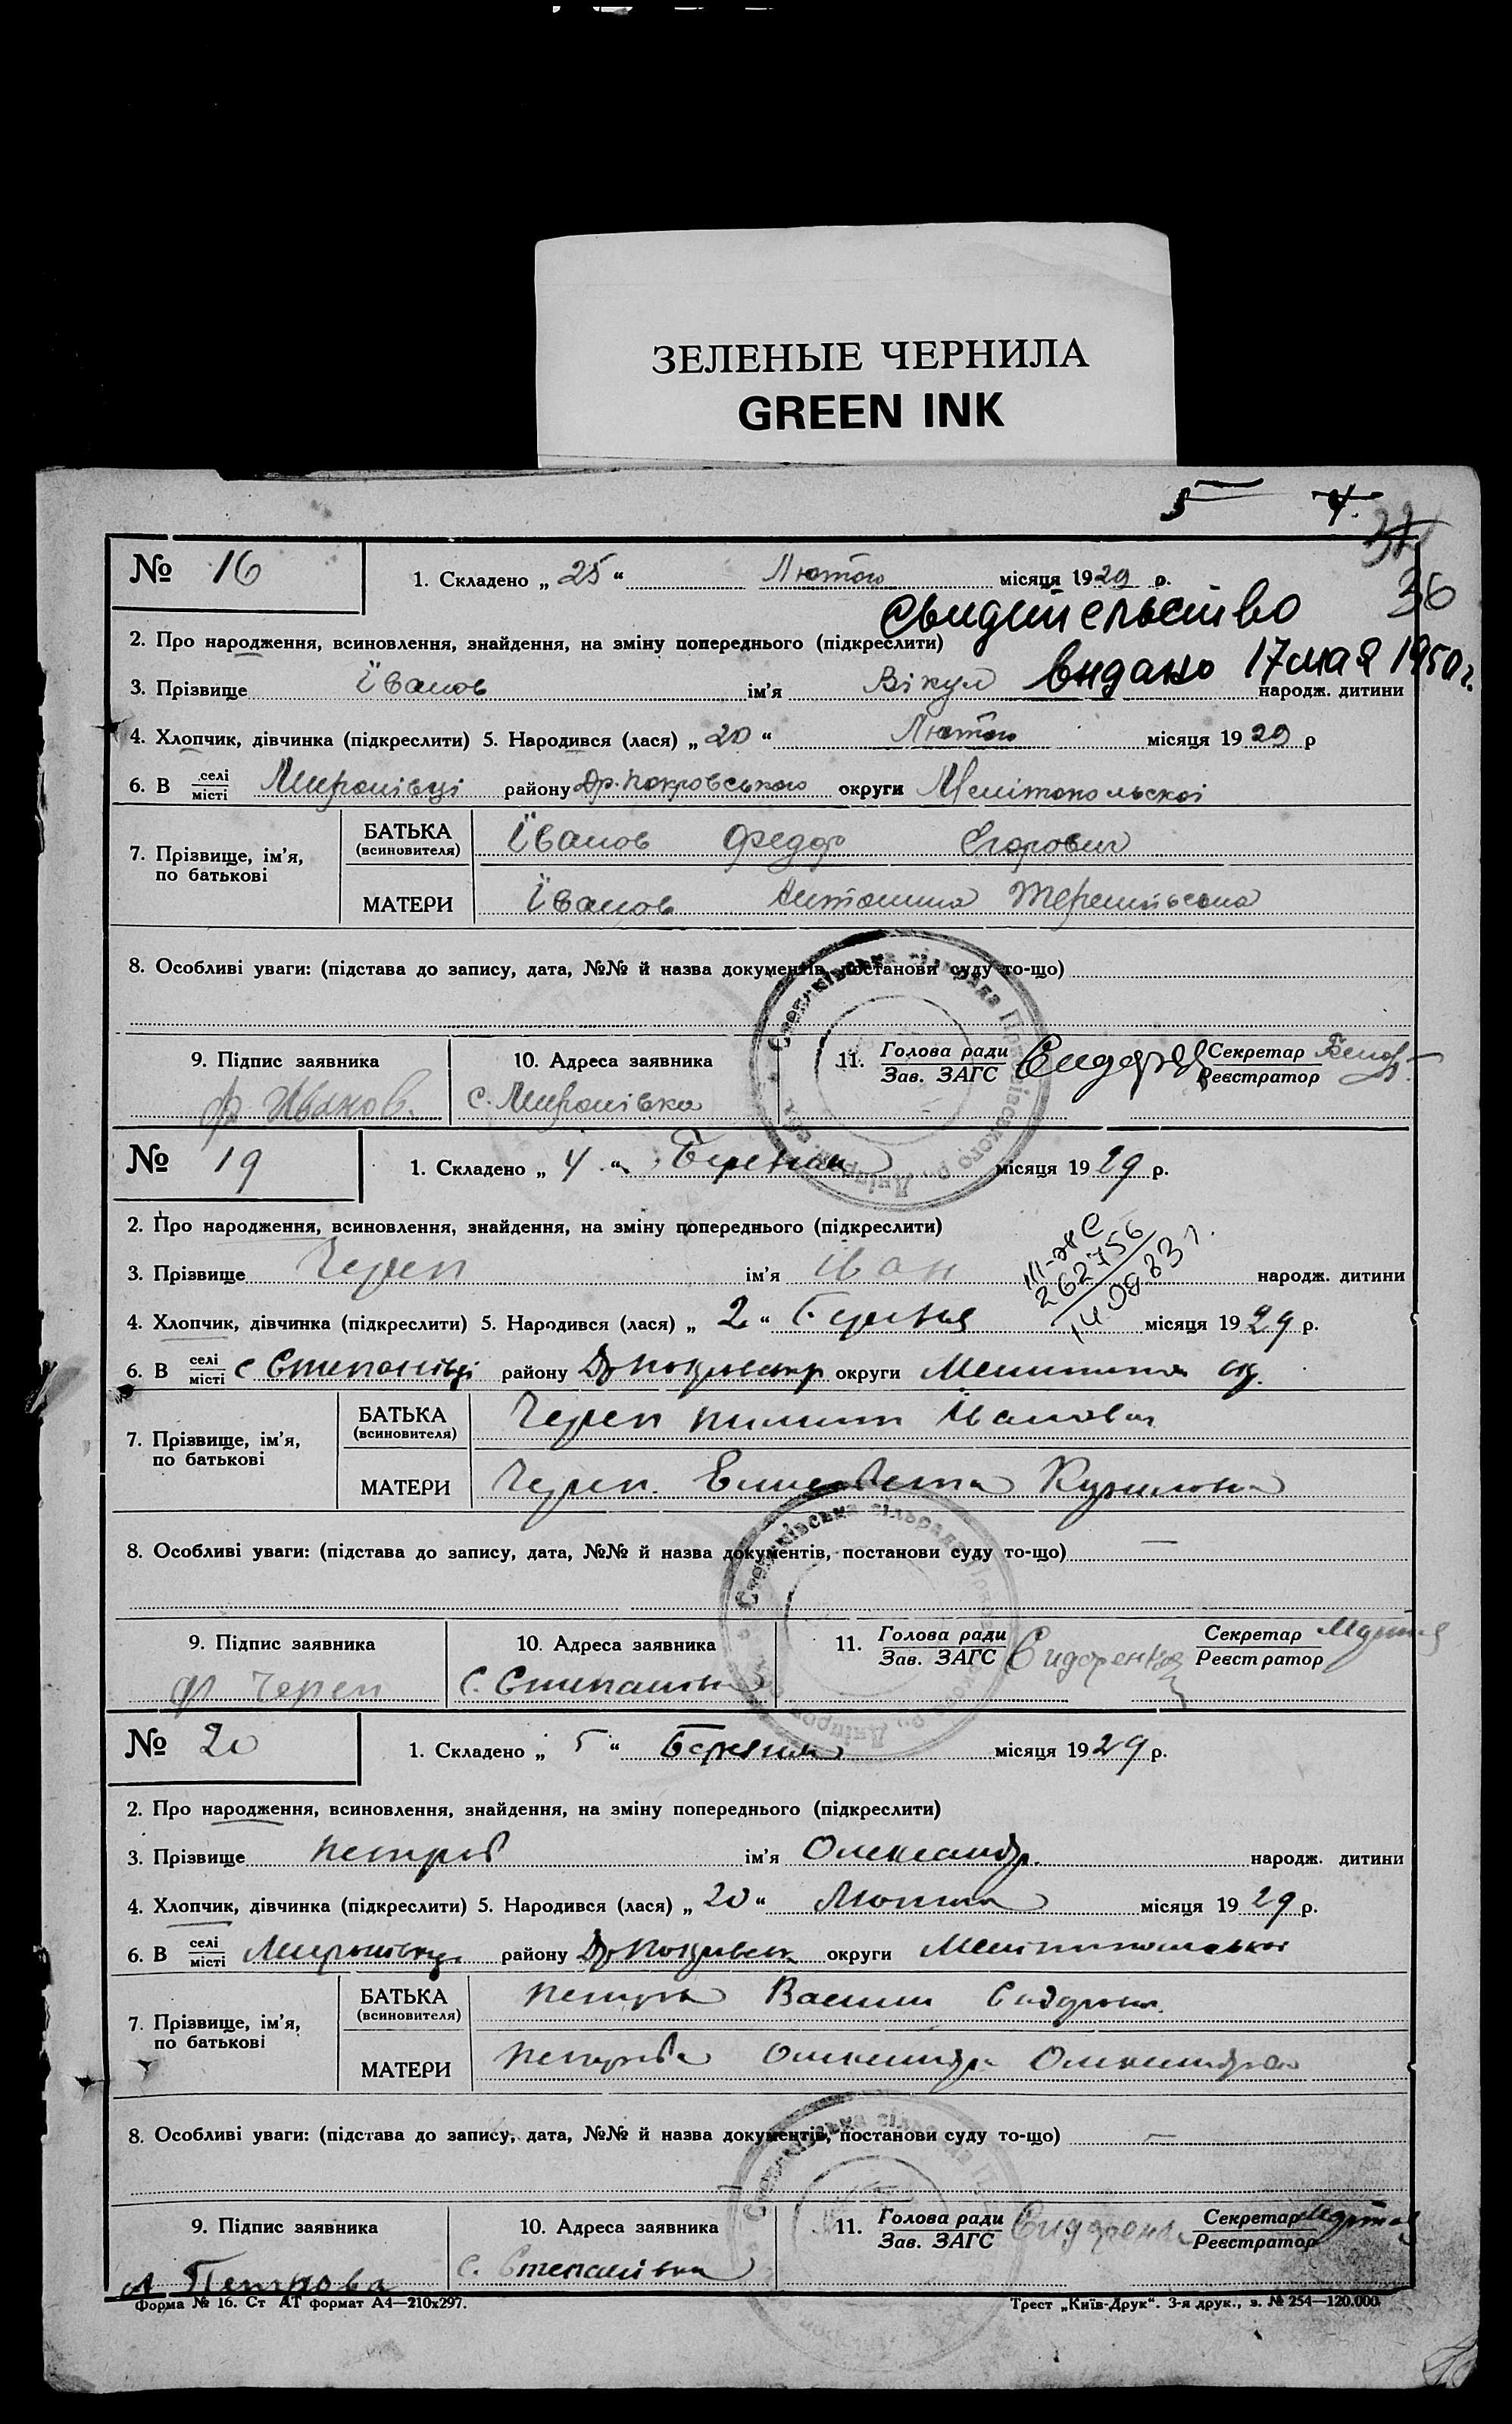 ЗЕЛЕНЫЕ ЧЕРНИЛА
GREEN INK
5
36
№ 16
1. Складено „ 25 “ Лютого місяця 1929 р.
Свидительство
2. Про народження, всиновлення, знайдення, на зміну попереднього (підкреслити)
видано 17 мая 1950 г.
3. Прізвище Їванов ім'я Вікул народж. дитини
4. Хлопчик, дівчинка (підкреслити) 5. Народився (лася) „ 20 “ Лютого місяця 1929 р
6. В селі місті Миронівці району Др. Покровського округи Мелітопольскої
7. Прізвище, ім'я, по батькові
БАТЬКА (всиновителя) Їванов Федор Єгорович
МАТЕРИ Їванов Антонина
8. Особливі уваги: (підстава до запису, дата, №№ й назва документів, постанови суду то-що)
9. Підпис заявника
ф Иванов.
10. Адреса заявника
с. Миронівка
11. Голова ради
Зав. ЗАГС
Секретар
Реєстратор
№ 19
1. Складено „ 4 “ місяця 1929 р.
2. Про народження, всиновлення, знайдення, на зміну попереднього (підкреслити)
262756
3. Прізвище Череп ім'я Іван народж. дитини
4. Хлопчик, дівчинка (підкреслити) 5. Народився (лася) „ 2 “ Березня місяця 1929 р.
6. В селі місті с Степанівці району округи
7. Прізвище, ім'я, по батькові
БАТЬКА (всиновителя) Череп Пилип Иванович
МАТЕРИ Череп. Елисовета
8. Особливі уваги: (підстава до запису, дата, №№ й назва документів, постанови суду то-що) —
9. Підпис заявника
Ф Череп
10. Адреса заявника
С. Степанівка
11. Голова ради
Зав. ЗАГС
Сидоренко
Секретар
Реєстратор
№ 20
1. Складено „ 5 “ місяця 1929 р.
2. Про народження, всиновлення, знайдення, на зміну попереднього (підкреслити)
3. Прізвище Петров ім'я Олександр. народж. дитини
4. Хлопчик, дівчинка (підкреслити) 5. Народився (лася) „ 20 “ місяця 1929 р.
6. В селі місті Миронівці району округи
7. Прізвище, ім'я, по батькові
БАТЬКА (всиновителя) Петров Василь
МАТЕРИ Петрова Олександра
8. Особливі уваги: (підстава до запису, дата, №№ й назва документів, постанови суду то-що) —
9. Підпис заявника
А Петрова
10. Адреса заявника
с. Степанівка
11. Голова ради
Зав. ЗАГС
Сидоренко
Секретар
Реєстратор
Форма № 16. Ст АТ формат А4—210х297.
Трест „Київ-Друк“. 3-я друк., з. № 254—120.000.